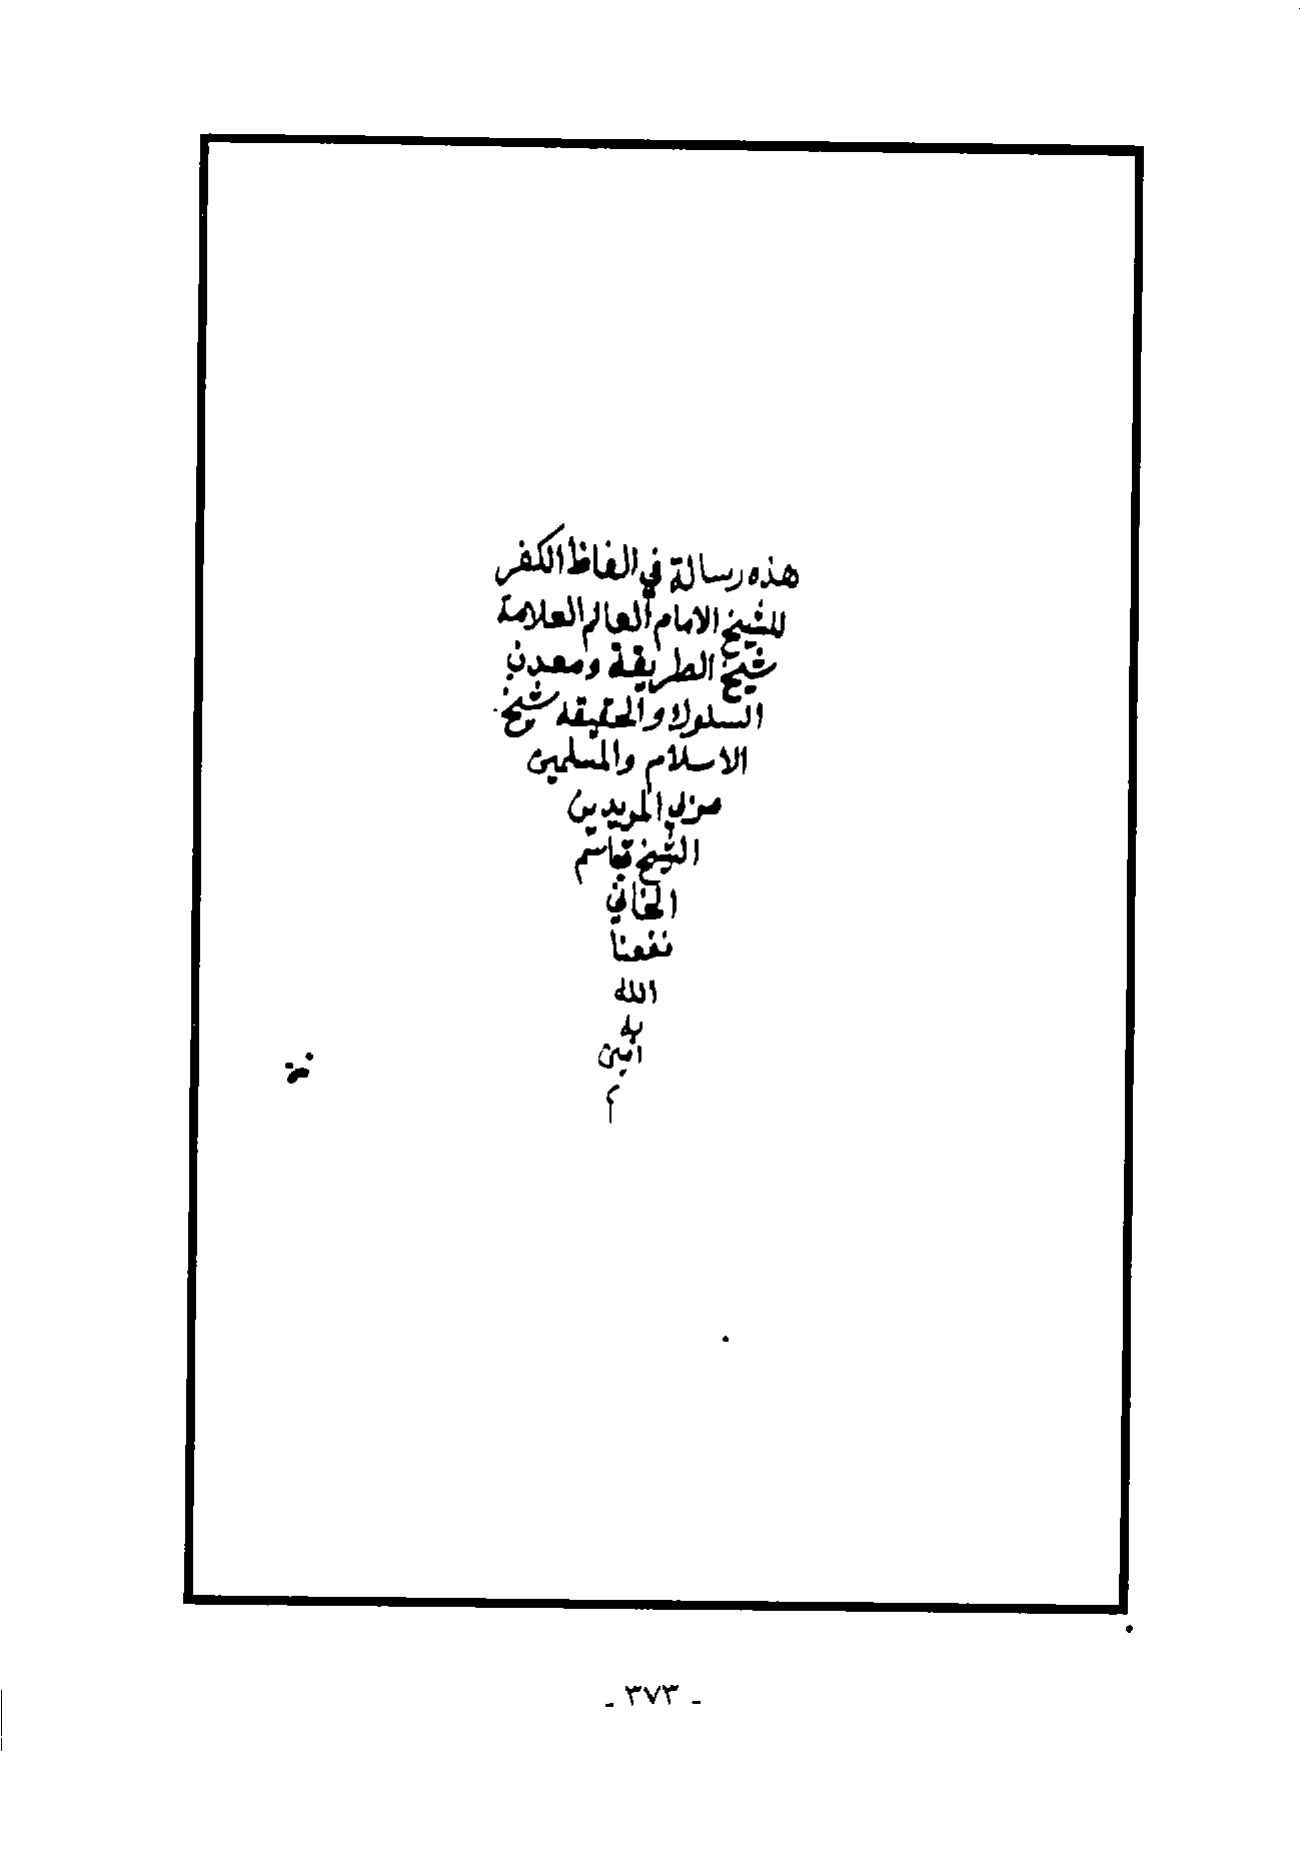 هذه رسالة في الفاظ الكفر
للشيخ الامام العالم العلامة
شيخ الطريقة ومعدن
السلوك والحقيقه شيخ
الاسلام والمسلمين
مربي المريدين
الشيخ قاسم
الخاني
نفعنا
الله
به
امين
م
ـ ٣٧٣ ـ